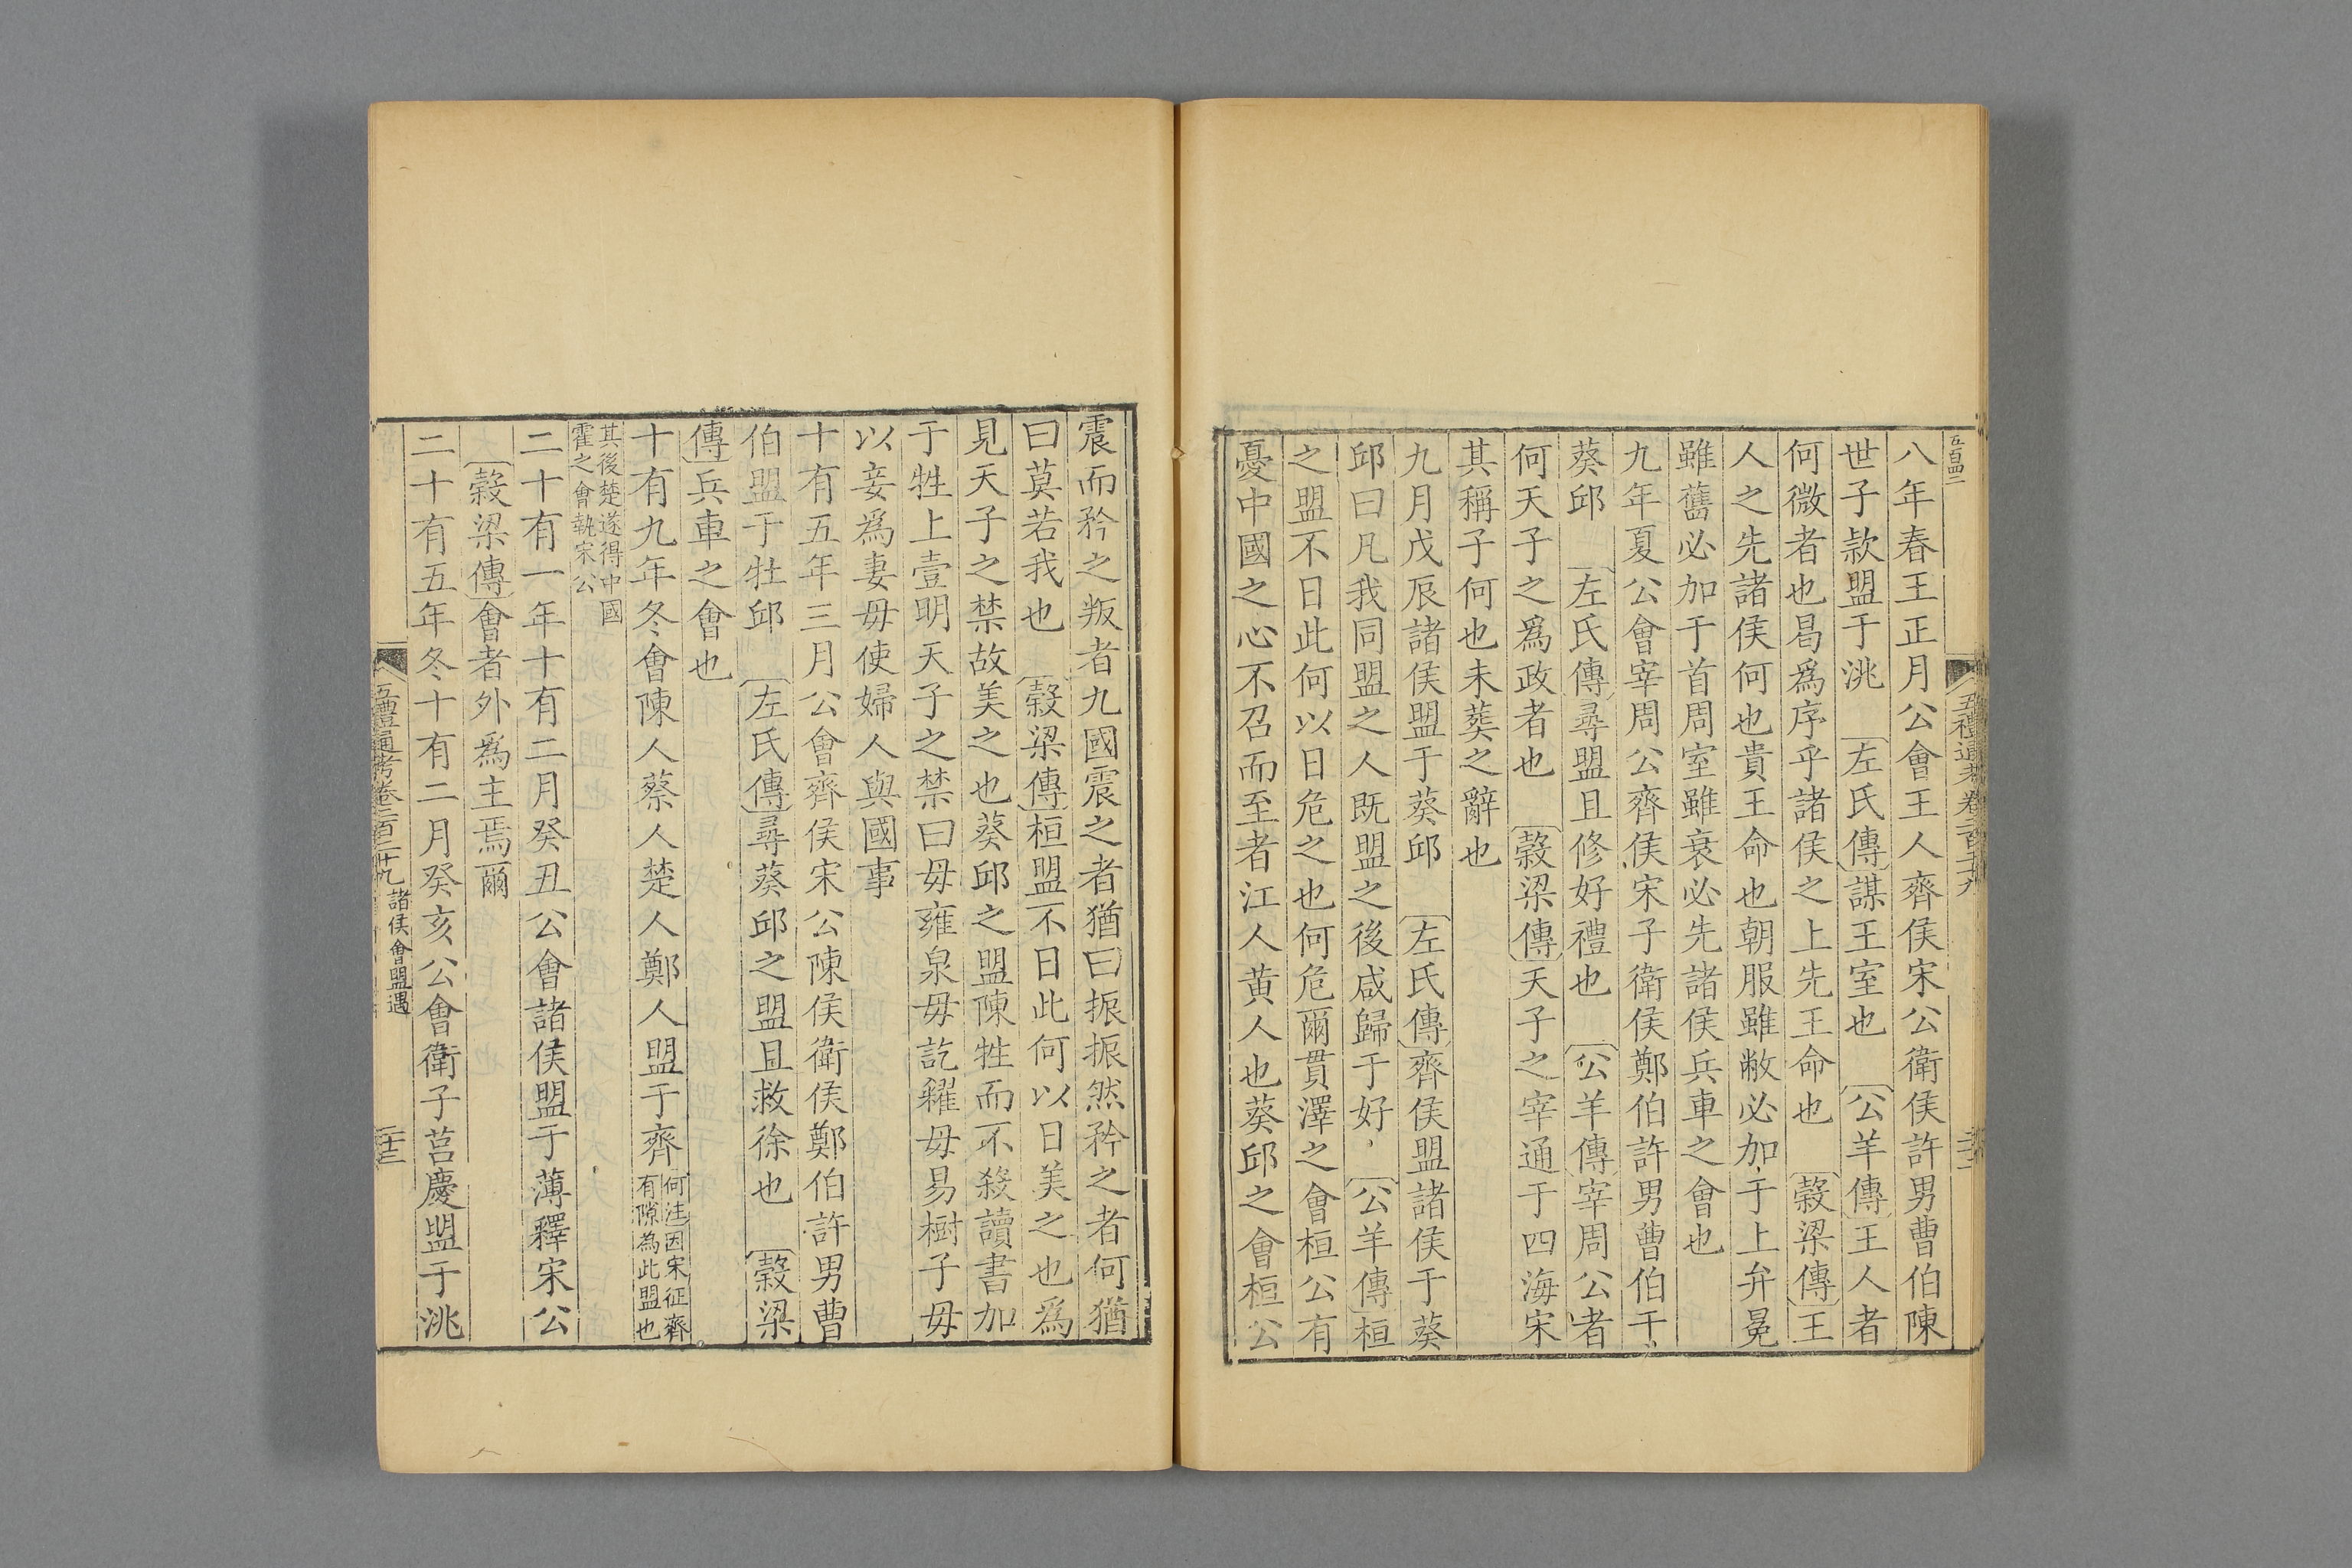 八年春王正月公會王人齊侯宋公衛侯許男曹伯陳
世子款盟于洮 左氏傳謀王室也 公羊傳王人者
何微者也曷爲序乎諸侯之上先王命也 穀梁傳王
人之先諸侯何也貴王命也朝服雖敝必加于上弁冕
雖舊必加于首周室雖衰必先諸侯兵車之會也
九年夏公會宰周公齊侯宋子衛侯鄭伯許男曹伯于
葵邱 左氏傳尋盟且修好禮也 公羊傳宰周公者
何天子之爲政者也 穀梁傳天子之宰通于四海宋
其稱子何也未葬之辭也
九月戊辰諸侯盟于葵邱 左氏傳齊侯盟諸侯于葵
邱曰凡我同盟之人既盟之後咸歸于好 公羊傳桓
之盟不日此何以日危之也何危爾貫澤之會桓公有
憂中國之心不召而至者江人黄人也葵邱之會桓公
五禮通考卷二百二十九
震而矜之叛者九國震之者猶曰振振然矜之者何猶
曰莫若我也 穀梁傳桓盟不日此何以日美之也爲
見天子之禁故美之也葵邱之盟陳牲而不殺讀書加
于牲上壹明天子之禁曰毋雍泉毋訖糴毋易樹子毋
以妾爲妻毋使婦人與國事
十有五年三月公會齊侯宋公陳侯衛侯鄭伯許男曹
伯盟于牡邱 左氏傳尋葵邱之盟且救徐也 穀梁
傳兵車之會也
十有九年冬會陳人蔡人楚人鄭人盟于齊何注因宋征齊有隙為此盟也
其後楚遂得中國霍之會執宋公
二十有一年十有二月癸丑公會諸侯盟于薄釋宋公
穀梁傳會者外爲主焉爾
二十有五年冬十有二月癸亥公會衛子莒慶盟于洮
五禮通考卷二百二十九 諸侯會盟遇